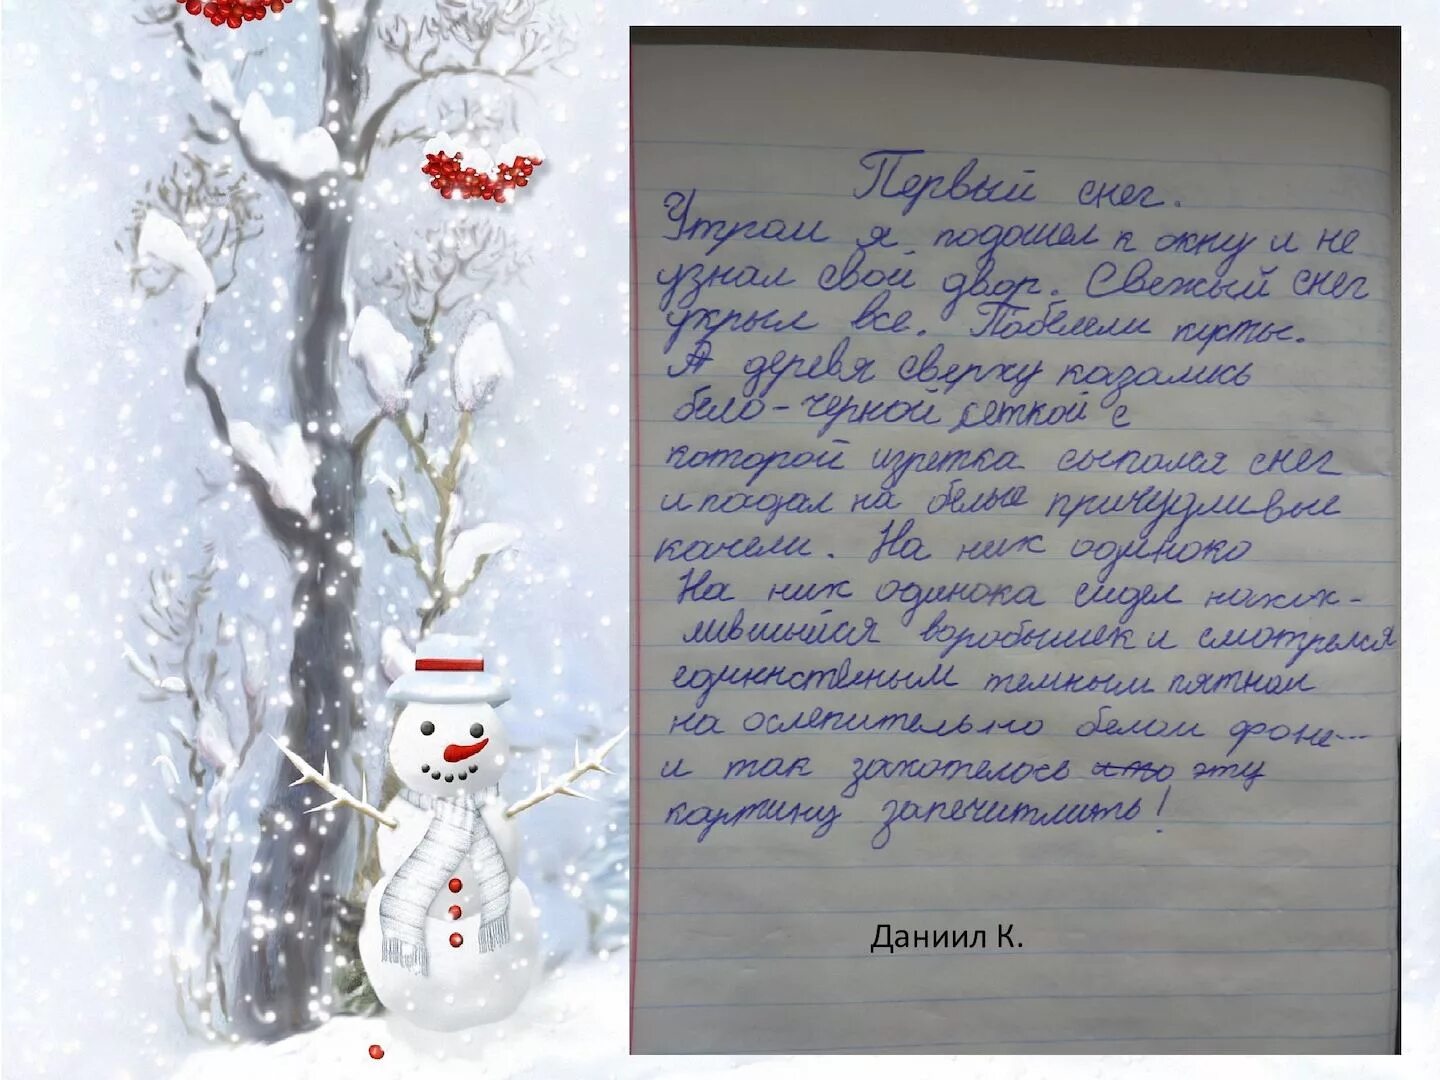 Первый снег.
Утром я подошел к окну и не
узнал свой двор. Свежый снег
укрыл все. Побелели кусты.
А деревя сверху казались
бело-черной сеткой с
которой изретка сыпался снег
и падал на белые причудливые
качели. На них одиноко
На них одинока сидел нахох-
лившыйся воробышек и смотрелся
единнственым темным пятном
на ослепительно белом фоне...
и так захотелось эту
картину запечитлить!
Даниил К.